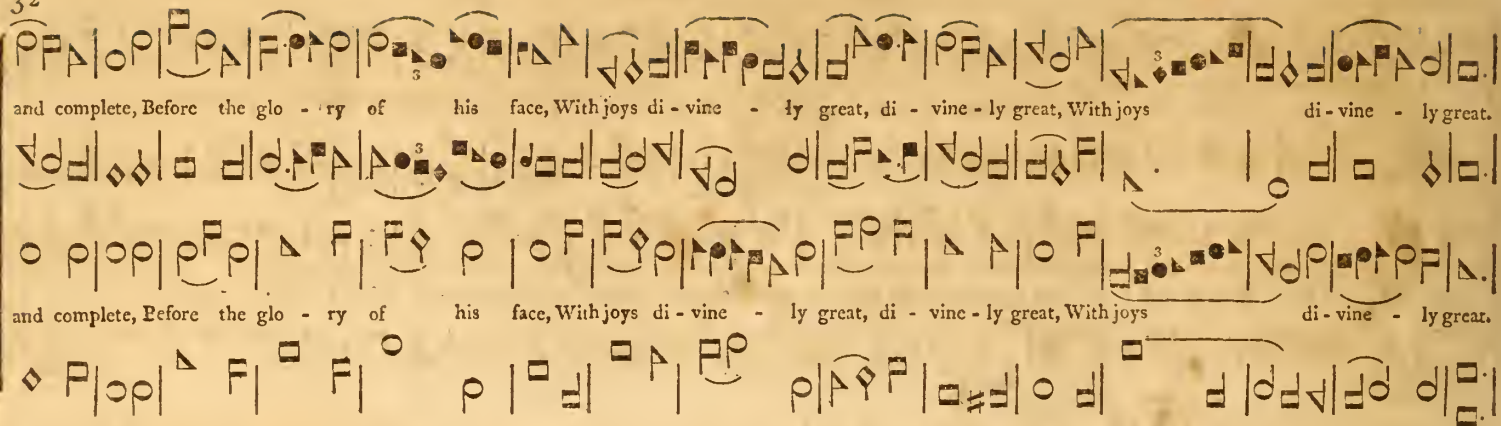 and complete, Before the glo - ry of his face, With joys di - vine - ly great, di - vine - ly great, With joys di - vine - ly great.
and complete, Before the glo - ry of his face, With joys di - vine - ly great, di - vine - ly great, With joys di - vine - ly great.